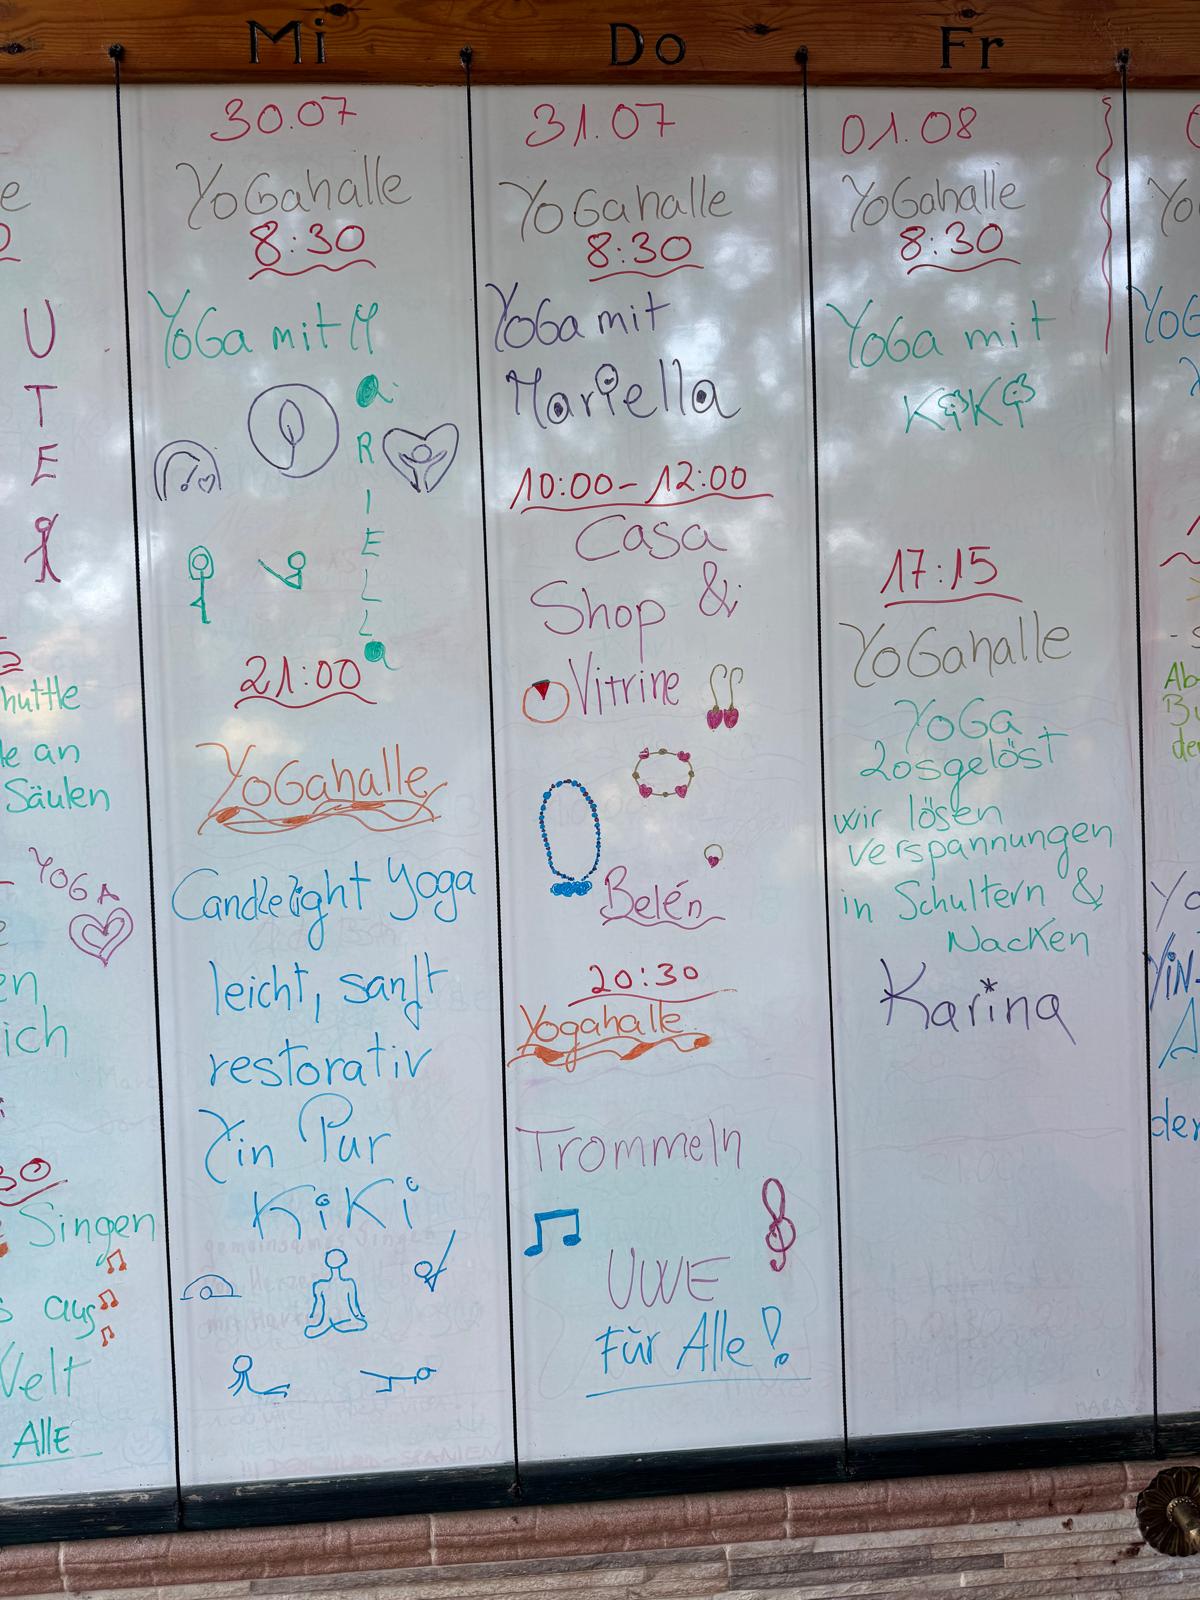 Mi
30.07
YoGahalle
8:30
YoGa mit M
a
R
I
E
L
L
a
21:00
YoGahalle
Candlelight Yoga
leicht, sanft
restorativ
Yin Pur
KiKi
Do
31.07
YoGahalle
8:30
YoGa mit
Mariella
10:00-12:00
Casa
Shop &
Vitrine
Belén
20:30
Yogahalle
Trommeln
UWE
Für Alle!
Fr
01.08
YoGahalle
8:30
YoGa mit
KiKi
17:15
YoGahalle
YoGa
losgelöst
wir lösen
verspannungen
in Schultern &
Nacken
Karina
U
T
E
Säulen
YOGA
Singen
aus
Welt
ALLE